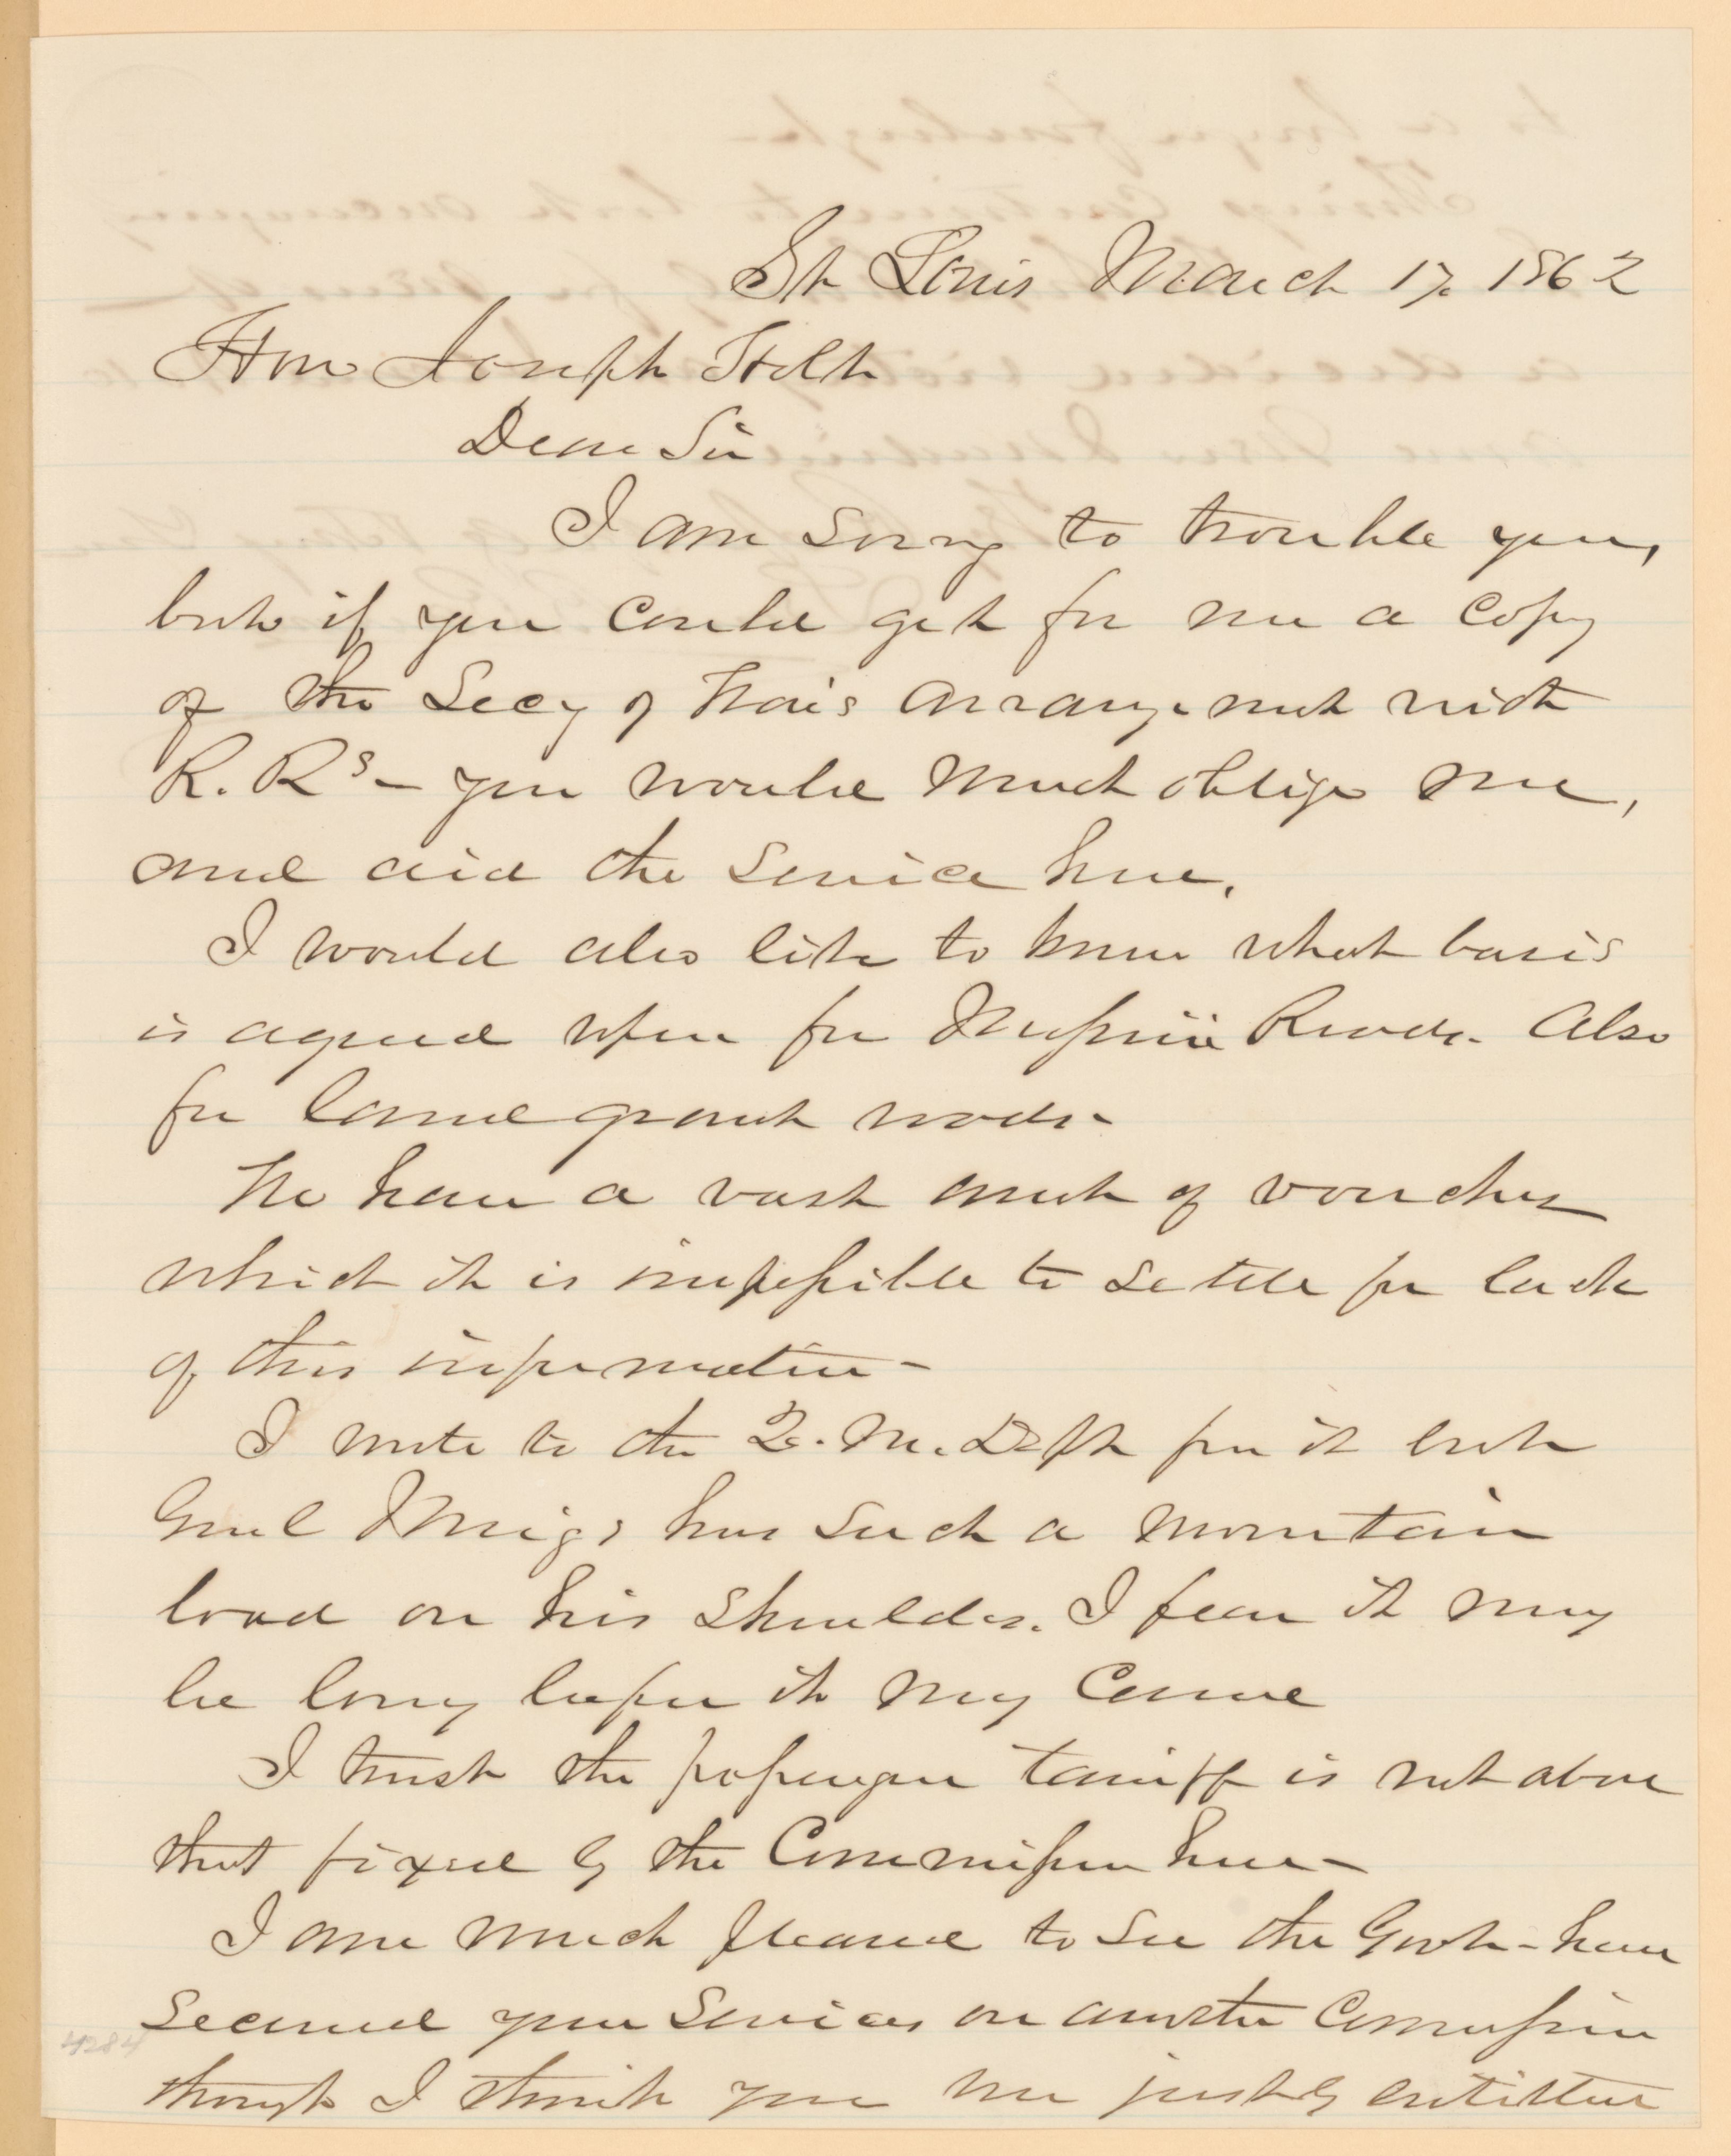 St Louis March 17. 1862
Hon Joseph Holt
Dear Sir
I am sorry to trouble you,
but if you could get for me a copy
of the Secy of War's arrangement with
R. Rs - you would much oblige me,
and aid the service here.
I would also like to know what basis
is agreed upon for Missouri Roads. Also
for land grant roads-
We have a vast amt of vouchers
which it is impossible to settle for lack
of this information-
I wrote to the Q. M. Dept for it but
Genl Meigs has such a mountain
load on his shoulders. I fear it may
be long before it may come
I trust the passenger tariff is not above
that fixed by the Commission here-
I am much pleased to see the Govt- have
secured your services on another Commission
though I think you are justly entitled
4284